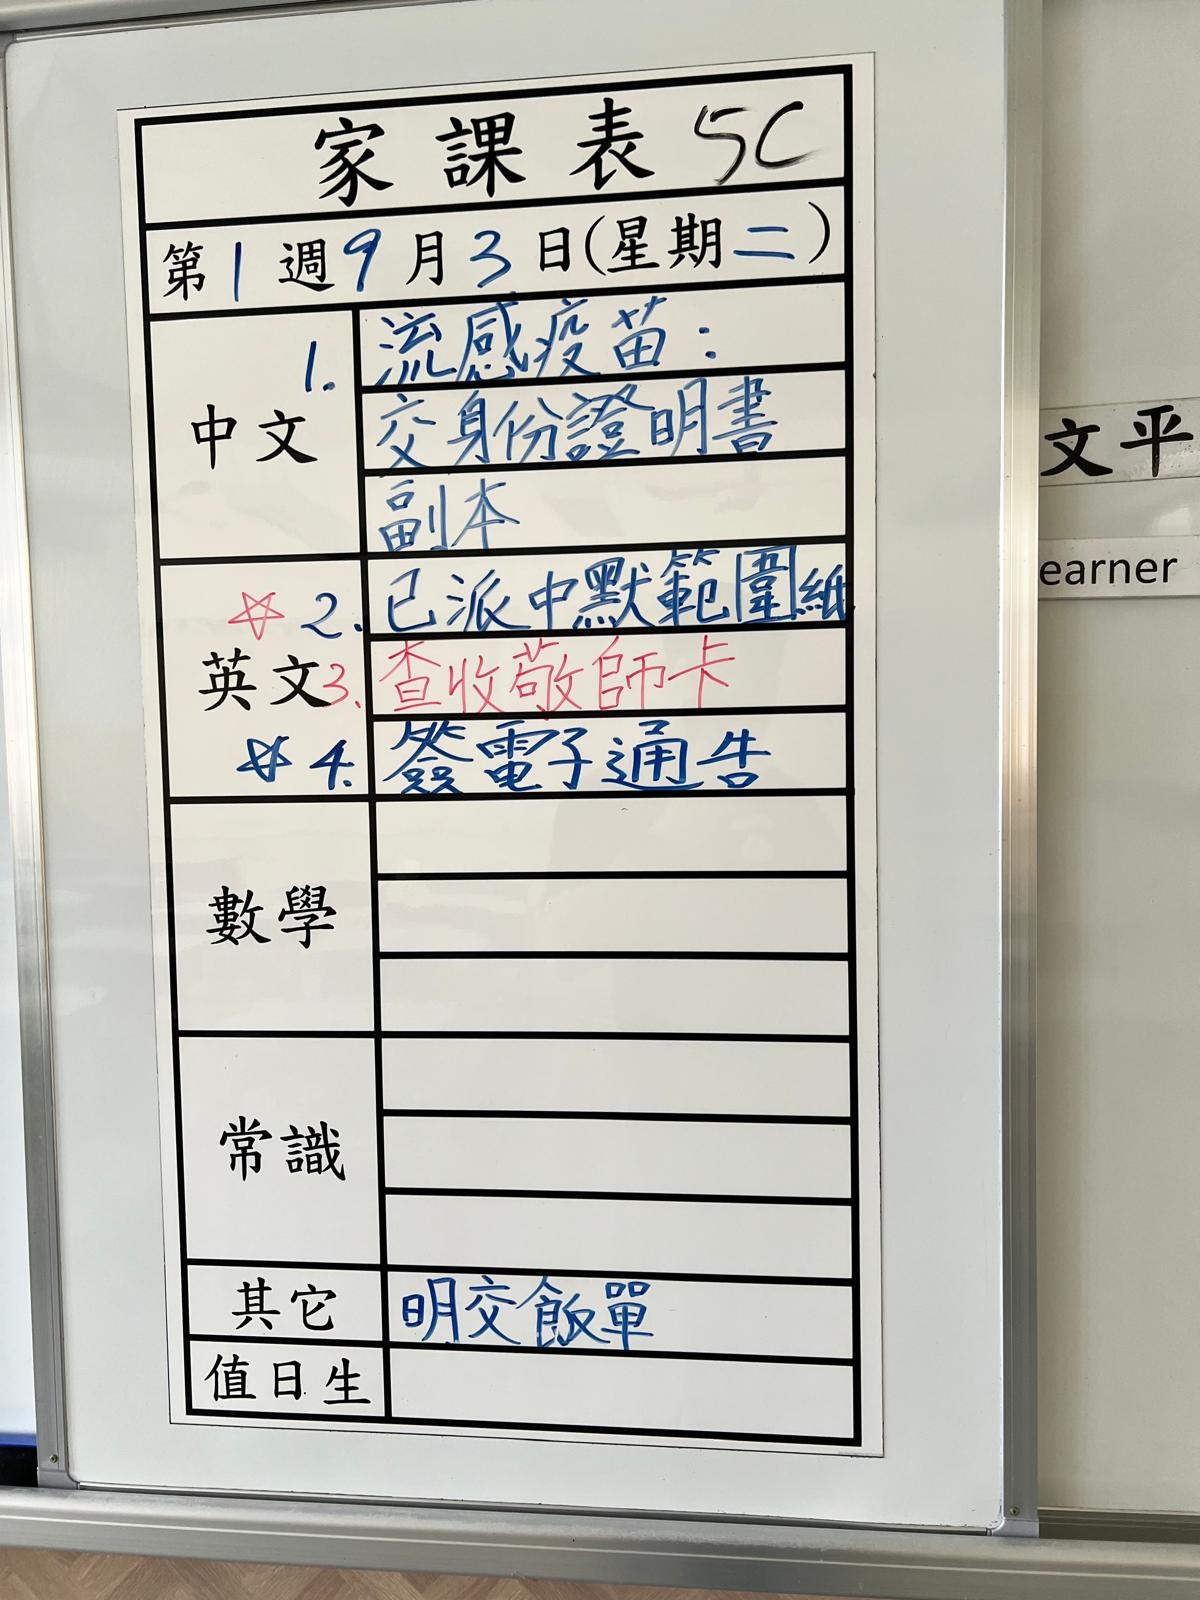 家課表 5C
第1週9月3日(星期二)
中文
1. 流感疫苗:
交身份證明書
副本
英文
☆ 2. 已派中默範圍紙
3. 查收敬師卡
☆ 4. 簽電子通告
數學
常識
其它 明交飯單
值日生
文平
earner